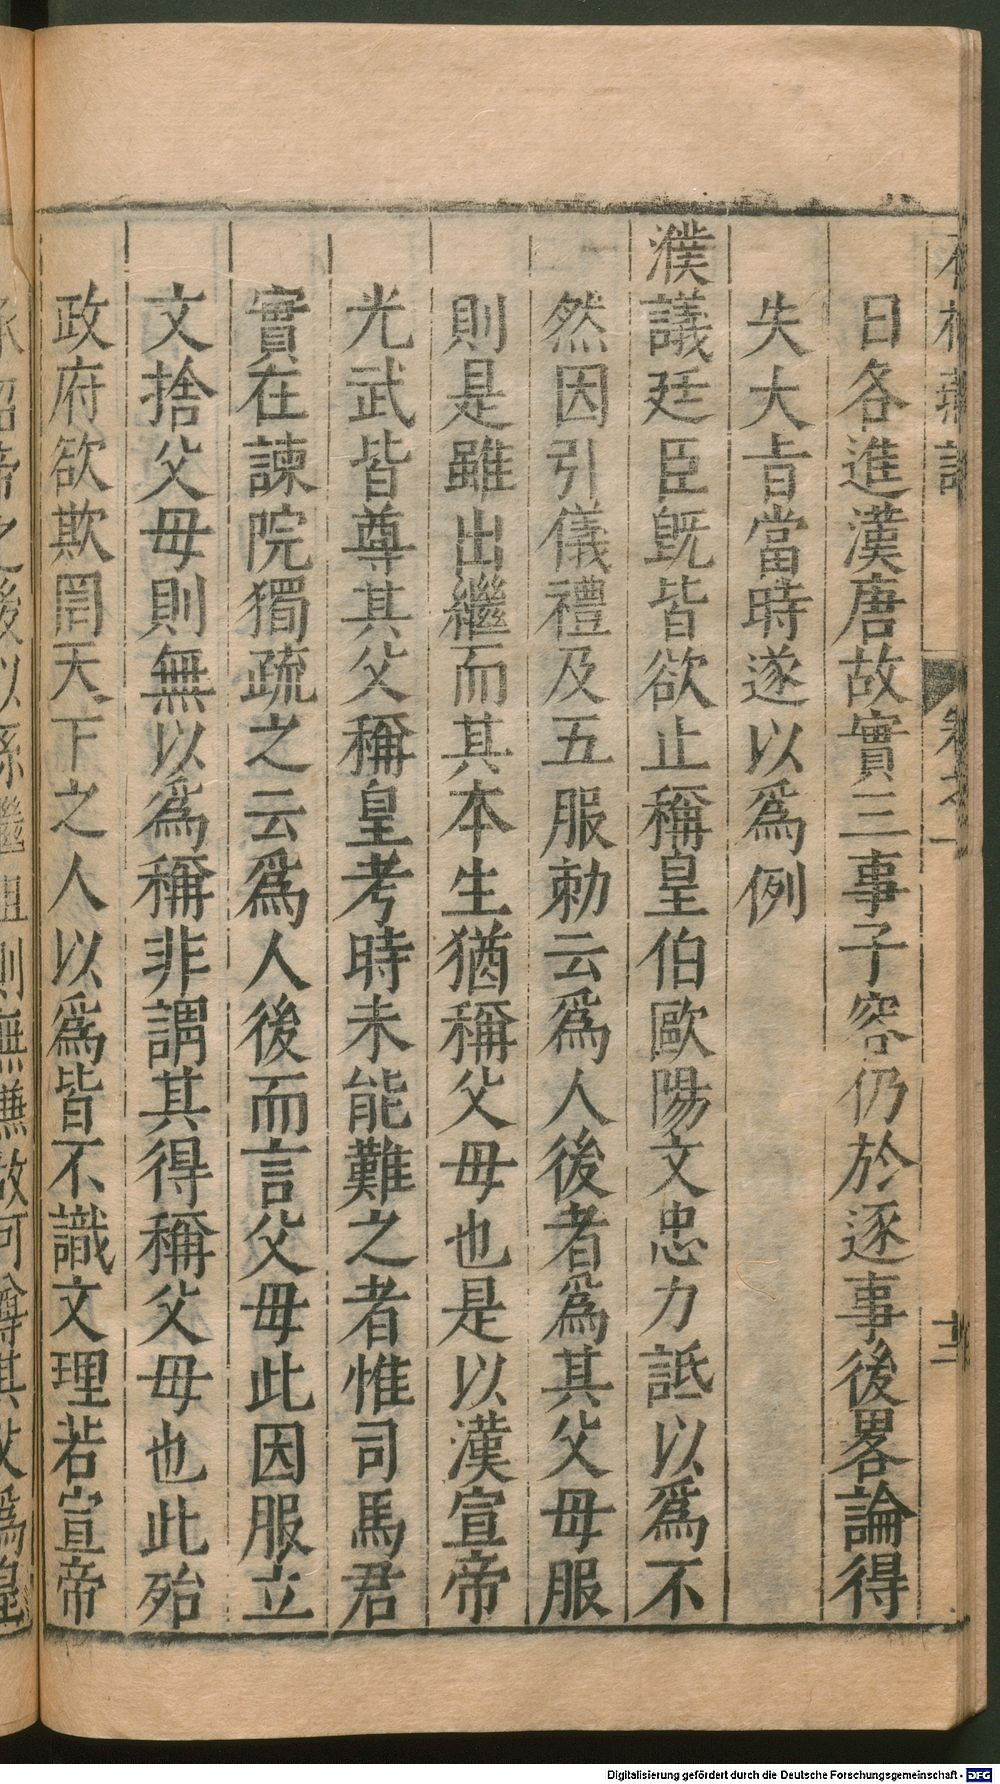 日各進漢唐故實三事子容仍於逐事後畧論得
失大㫖當時遂以爲例
濮議廷臣旣皆欲止稱皇伯歐陽文忠力詆以爲不
然因引儀禮及五服勑云爲人後者爲其父母服
則是雖出繼而其本生猶稱父母也是以漢宣帝
光武皆尊其父稱皇考時未能難之者惟司馬君
實在諫院獨疏之云爲人後而言父母此因服立
文捨父母則無以爲稱非謂其得稱父母也此殆
政府欲欺罔天下之人以爲皆不識文理若宣帝
Digitalisierung gefördert durch die Deutsche Forschungsgemeinschaft - DFG